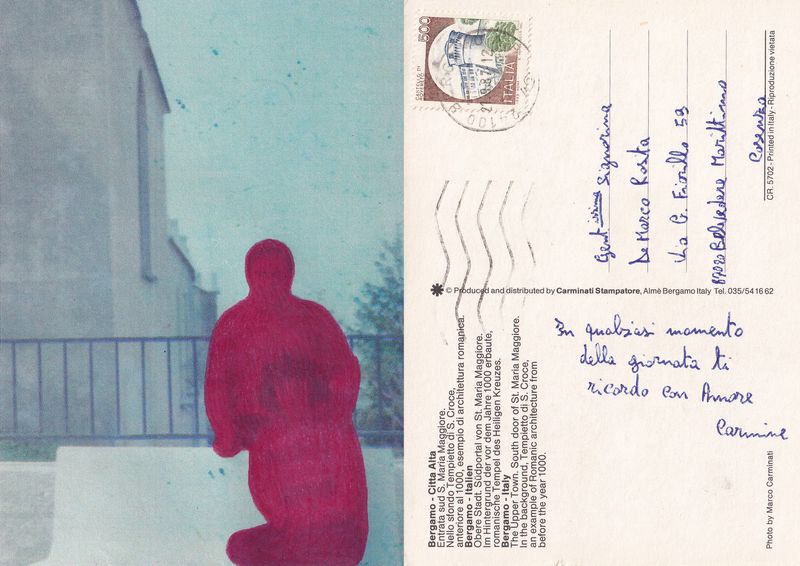 500
ITALIA
24100
Gent.issima Signorina
De Marco Rosita
Via G. Fiorillo 53
87020 Belvedere Marittimo
Cosenza
CR. 5702 - Printed in Italy - Riproduzione vietata
✱ © Produced and distributed by Carminati Stampatore, Almè Bergamo Italy Tel. 035/54 16 62
In qualsiasi momento
della giornata ti
ricordo con Amore
Carmine
Bergamo - Citta Alta
Entrata sud S. Maria Maggiore.
Nello sfondo Tempietto di S. Croce,
anteriore al 1000, esempio di architettura romanica.
Bergamo - Italien
Obere Stadt. Südportal von St. Maria Maggiore.
Im Hintergrund der vor dem Jahre 1000 erbaute,
romanische Tempel des Heiligen Kreuzes.
Bergamo - Italy
The Upper Town. South door of St. Maria Maggiore.
In the background, Tempietto di S. Croce,
an example of Romanic architecture from
before the year 1000.
Photo by Marco Carminati